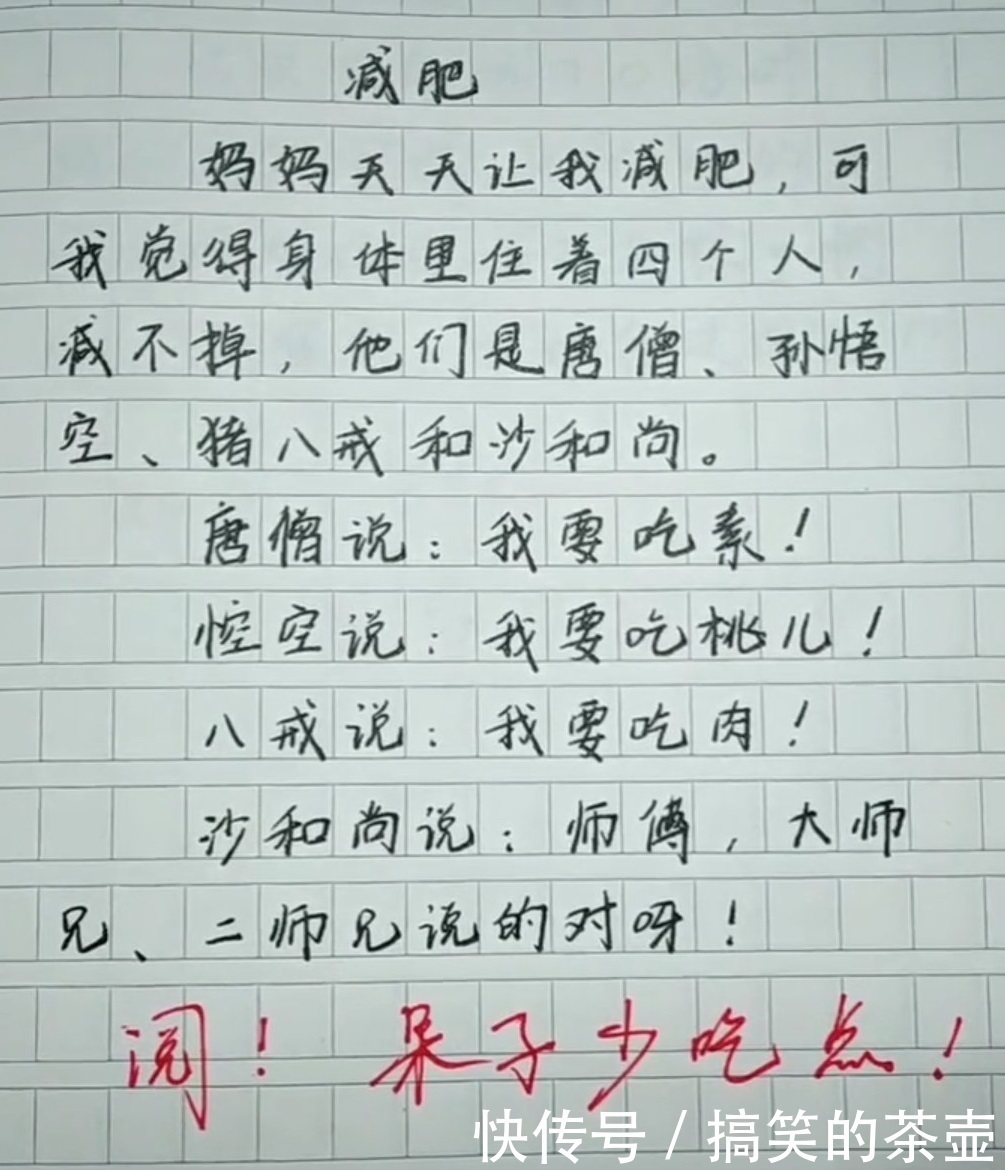 减肥
妈妈天天让我减肥，可
我觉得身体里住着四个人，
减不掉，他们是唐僧、孙悟
空、猪八戒和沙和尚。
唐僧说：我要吃素！
悾空说：我要吃桃儿！
八戒说：我要吃肉！
沙和尚说：师傅，大师
兄、二师兄说的对呀！
阅！呆子少吃点！
快传号/搞笑的茶壶